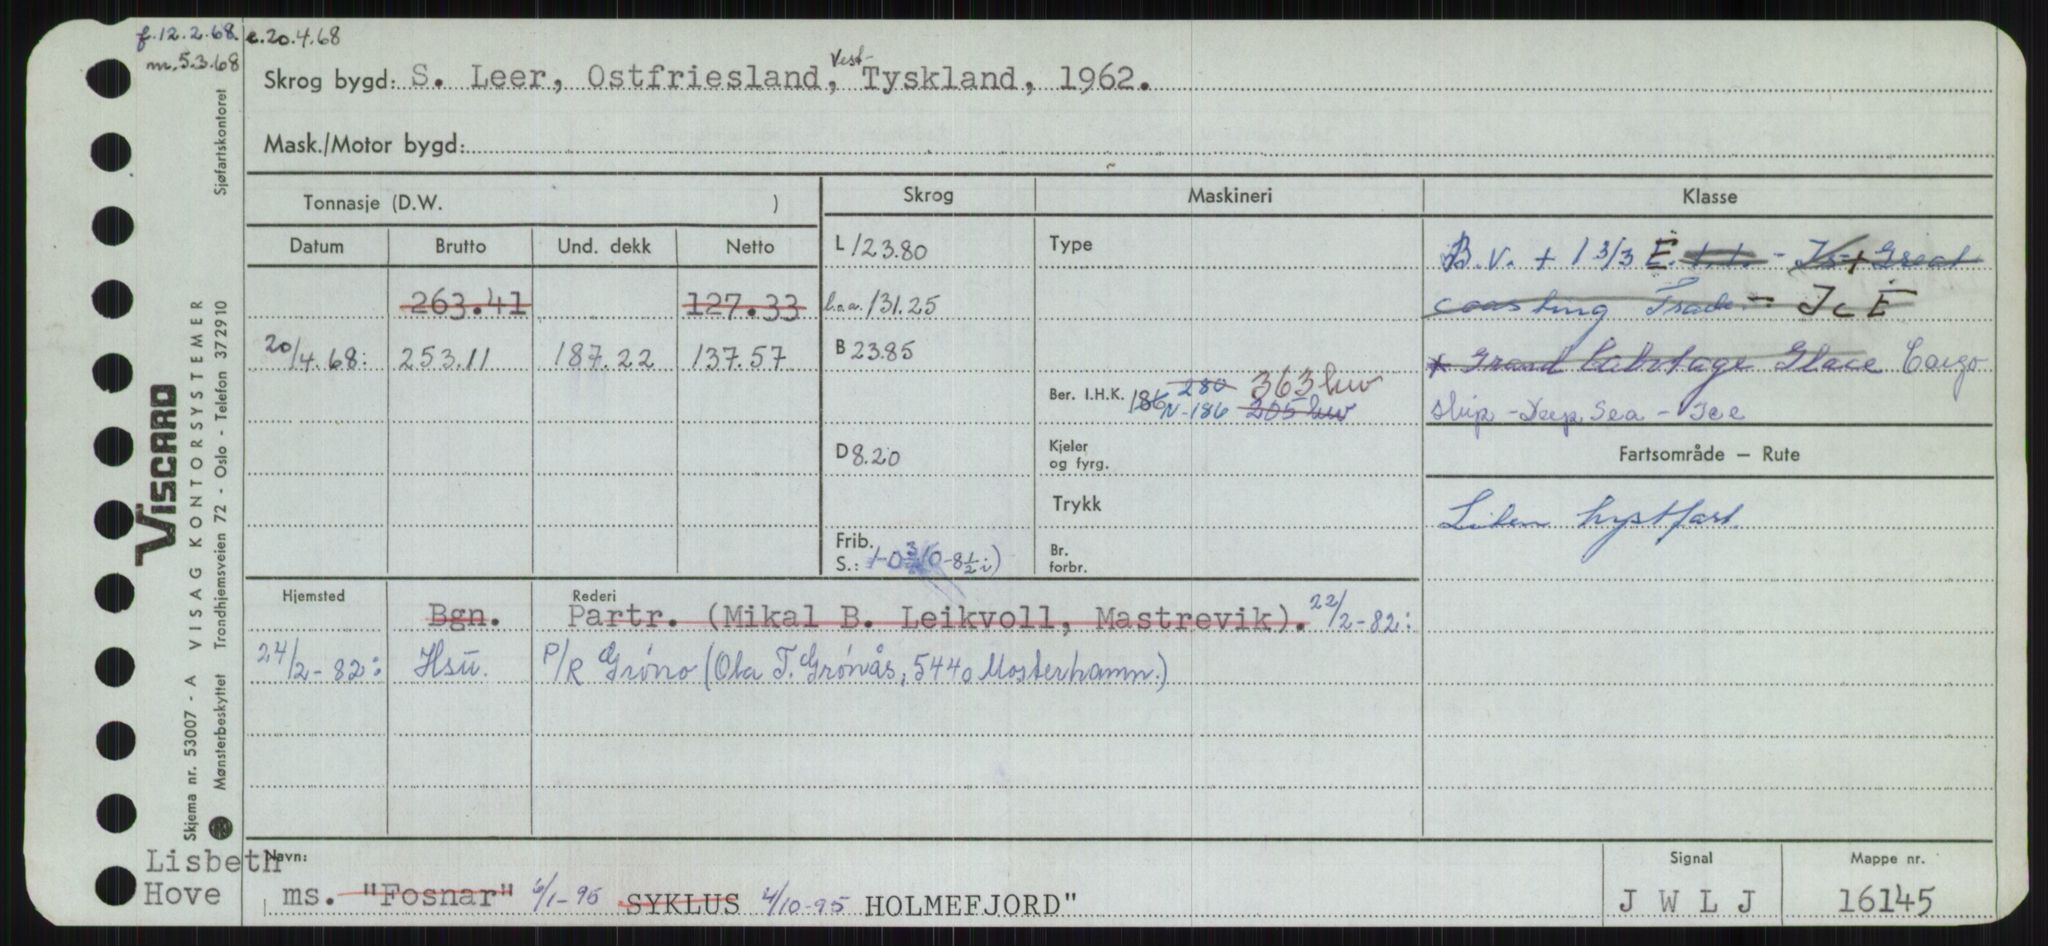 f.12.2.68. e.20.4.68
m.5.3.68
Skrog bygd: S. Leer, Ostfriesland, Vest-Tyskland, 1962.
Mask./Motor bygd:
Tonnasje (D.W. )
Skrog
Maskineri
Klasse
Datum
Brutto
Und. dekk
Netto
263.41
127.33
20/4.68:
253.11
187.22
137.57
L 123.80
l.o.a. 131.25
B 23.85
D 8.20
Frib.
S.: 1-0 3/4 (0-8 1/2 i)
Type
Ber. I.H.K. 186 280 363 hw
N-186 205 hw
Kjeler
og fyrg.
Trykk
Br.
forbr.
B.V. + 1 3/3 E. + Great
coasting Trade - Ice
* Grand Cabotage Glace Cargo
ship - Deep Sea - Ice
Fartsområde — Rute
Liten kystfart.
Hjemsted
Rederi
Bgn.
Partr. (Mikal B. Leikvoll, Mastrevik). 22/2-82:
24/2-82:
Hsu.
P/R Grøno (Ola T. Grønås, 5440 Mosterhamn.)
Lisbeth
Hove
Navn:
ms. "Fosnar" 6/1-95 SYKLUS 4/10-95 HOLMEFJORD"
Signal
J W L J
Mappe nr.
16145
VISCARD
Skjema nr. 53007 - A VISAG KONTORSYSTEMER
Mønsterbeskyttet Trondhjemsveien 72 - Oslo - Telefon 372910 Sjøfartskontoret